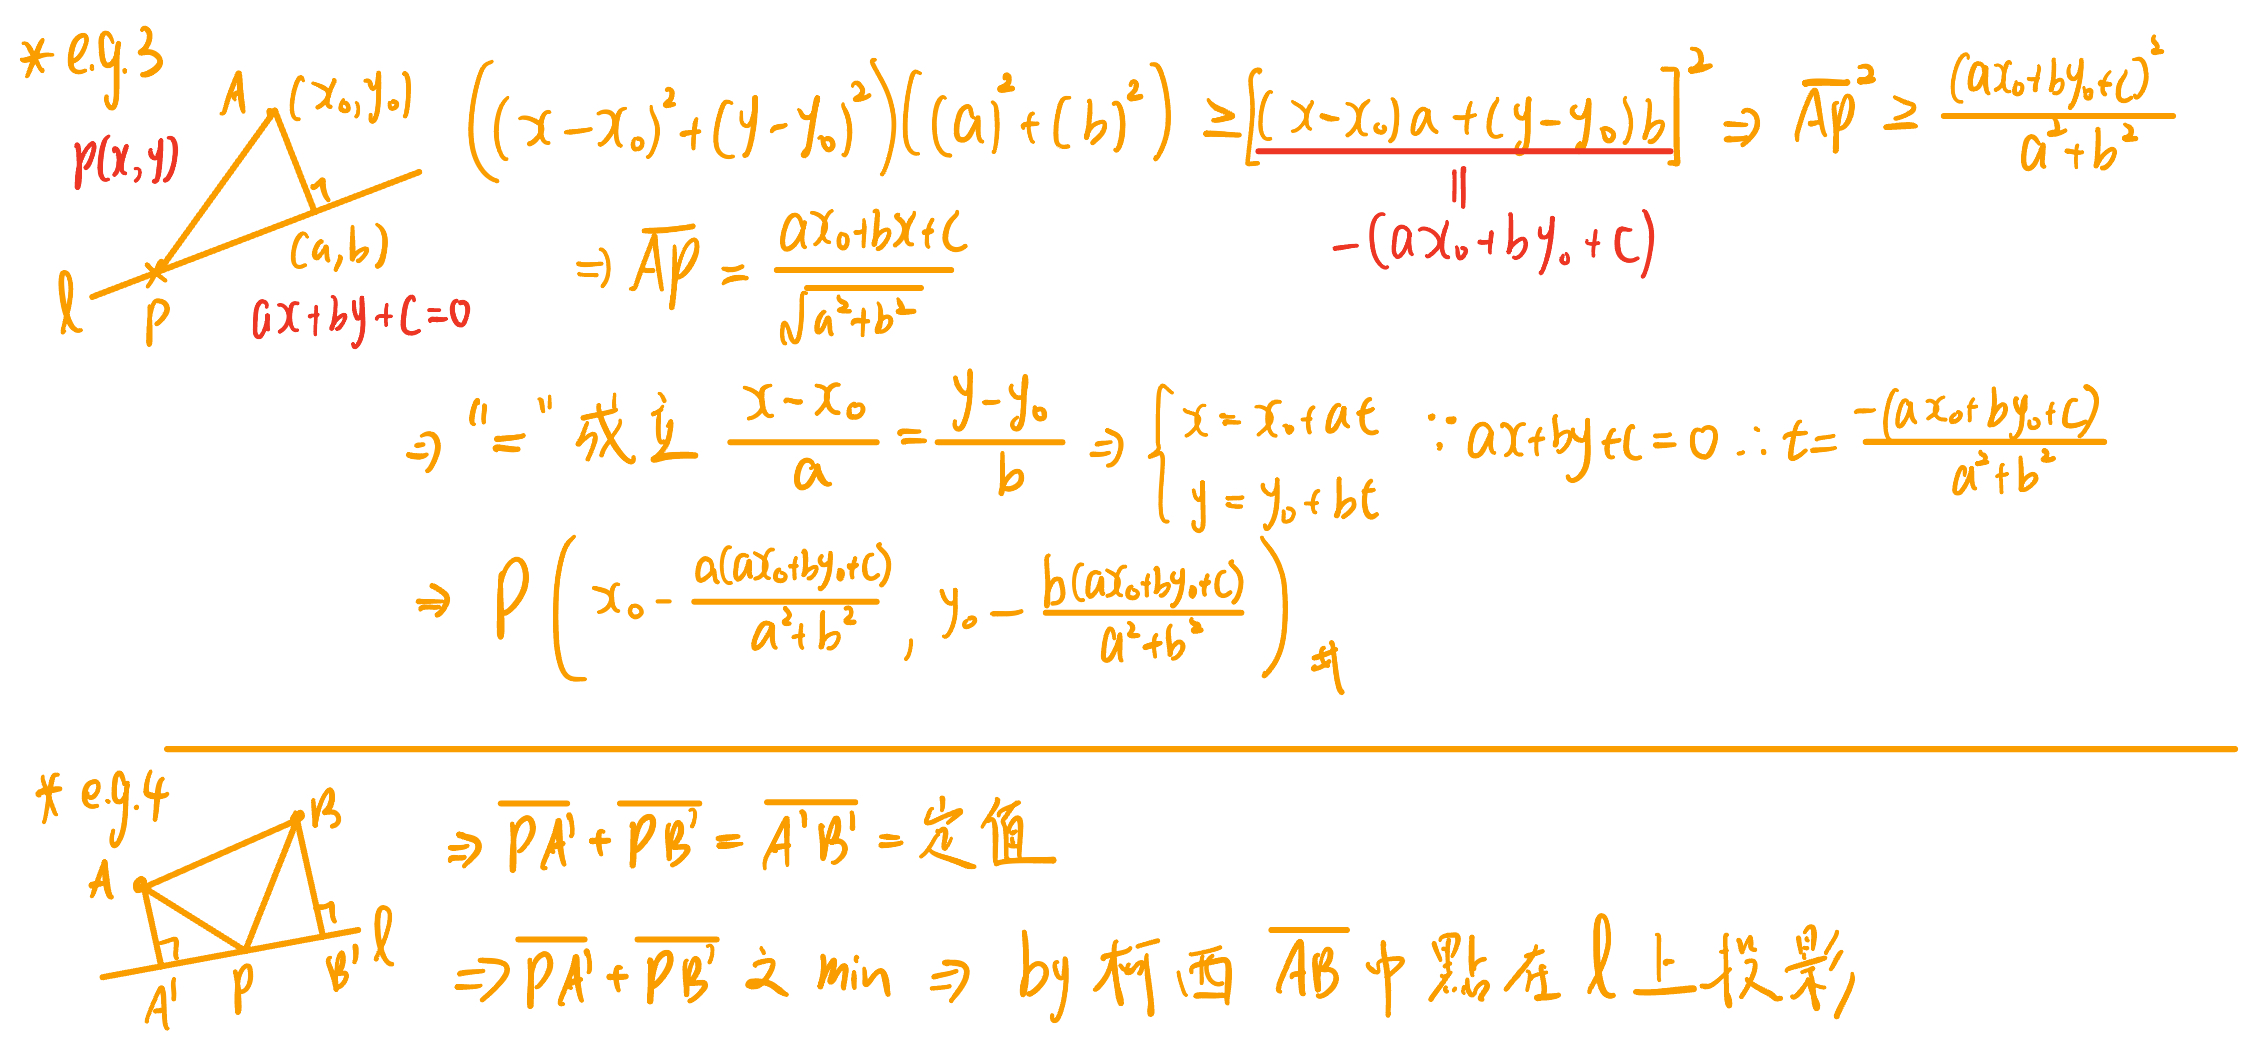 * e.g.3
A (x₀,y₀)
P(x,y)
(a,b)
l P
ax+by+c=0
((x-x₀)²+(y-y₀)²)((a)²+(b)²) ≥ [(x-x₀)a+(y-y₀)b]² ⇒ \overline{AP}² ≥ \frac{(ax₀+by₀+c)²}{a²+b²}
||
-(ax₀+by₀+c)
⇒ \overline{AP} = \frac{ax₀+bx+c}{\sqrt{a²+b²}}
⇒ "=" 成立 \frac{x-x₀}{a} = \frac{y-y₀}{b} ⇒ { x=x₀+at ∵ ax+by+c=0 ∴ t= \frac{-(ax₀+by₀+c)}{a²+b²}
y=y₀+bt
⇒ P( x₀- \frac{a(ax₀+by₀+c)}{a²+b²} , y₀- \frac{b(ax₀+by₀+c)}{a²+b²} ) #
* e.g.4
B
A
A' P B' l
⇒ \overline{PA'} + \overline{PB'} = \overline{A'B'} = 定值
⇒ \overline{PA'} + \overline{PB'} 之 min ⇒ by 柯西 \overline{AB} 中點在 l 上投影